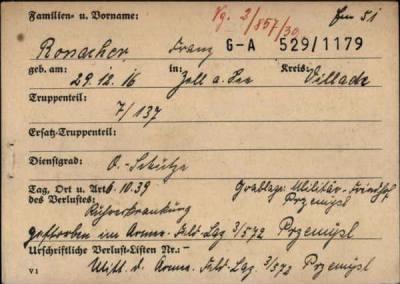 Familien- u. Vorname: Vg. 2/857/30
Rossacher, Franz G-A 529/1179
geb. am: in: Kreis:
29.12.16 Zell a. See Villach
Truppenteil:
7/137
Ersatz-Truppenteil:
Dienstgrad:
O.-Schütze
Tag, Ort u. Art 6.10.39 Grablage: Militär-Friedhof
des Verlustes: Przemysl
Ruhrerkrankung
gestorben im Armee-Feld-Laz 3/572 Przemysl
Urschriftliche Verlust-Listen Nr.: —
V1 Mittl. d. Armee-Feld-Laz. 3/572 Przemysl